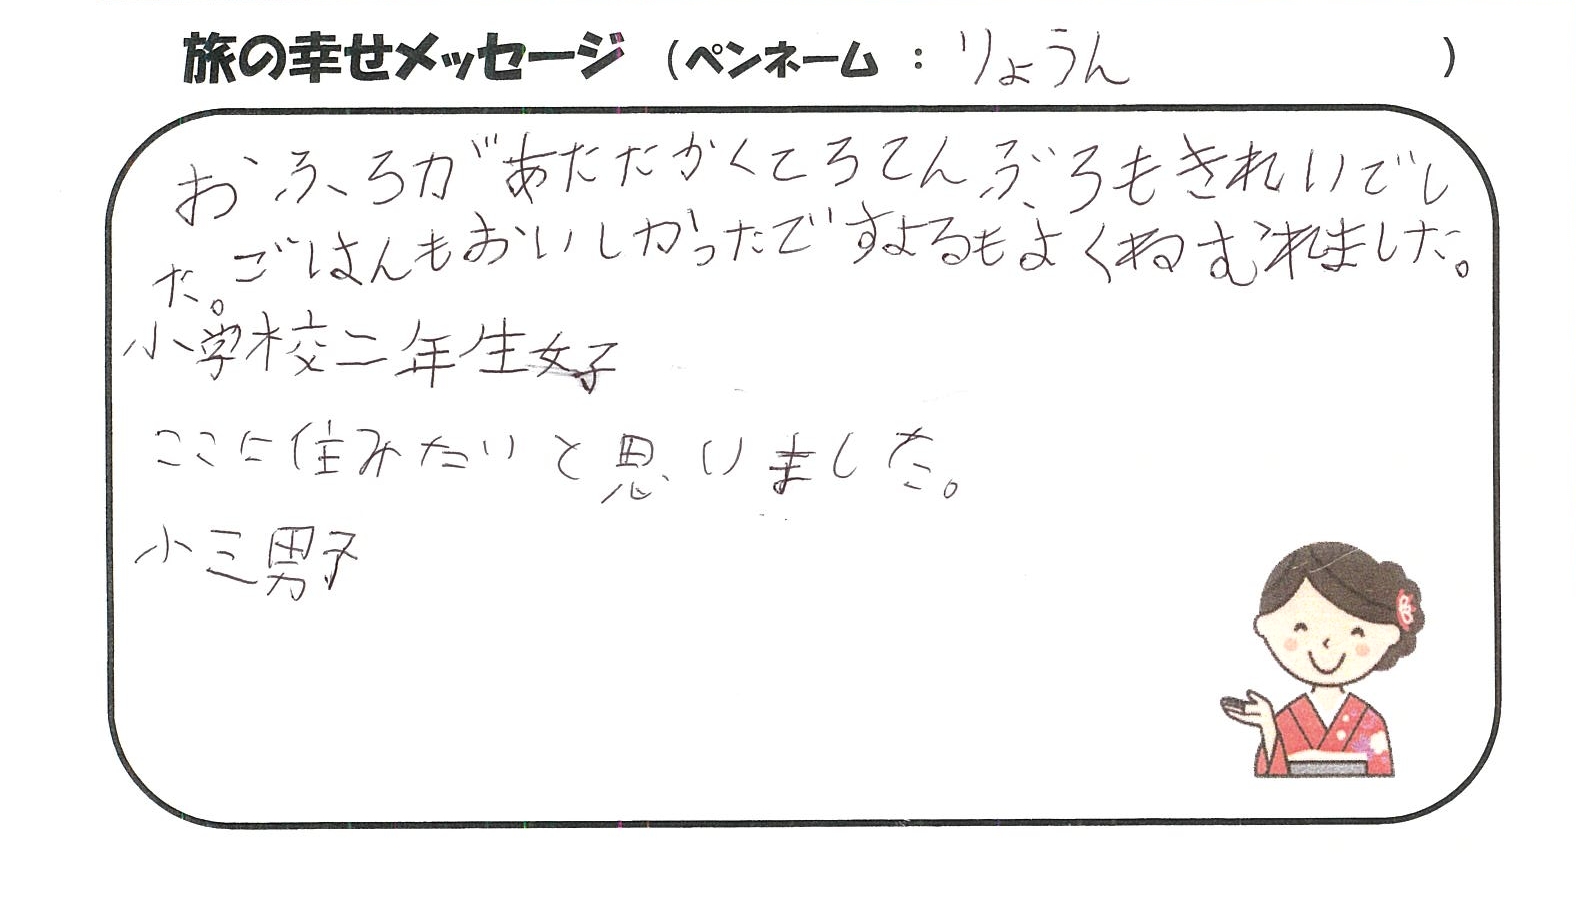 旅の幸せメッセージ （ペンネーム：りょうん ）
おふろがあたたかくてろてんぶろもきれいでし
た。ごはんもおいしかったですよるもよくねむれました。
小学校二年生女子
ここに住みたいと思いました。
小三男子